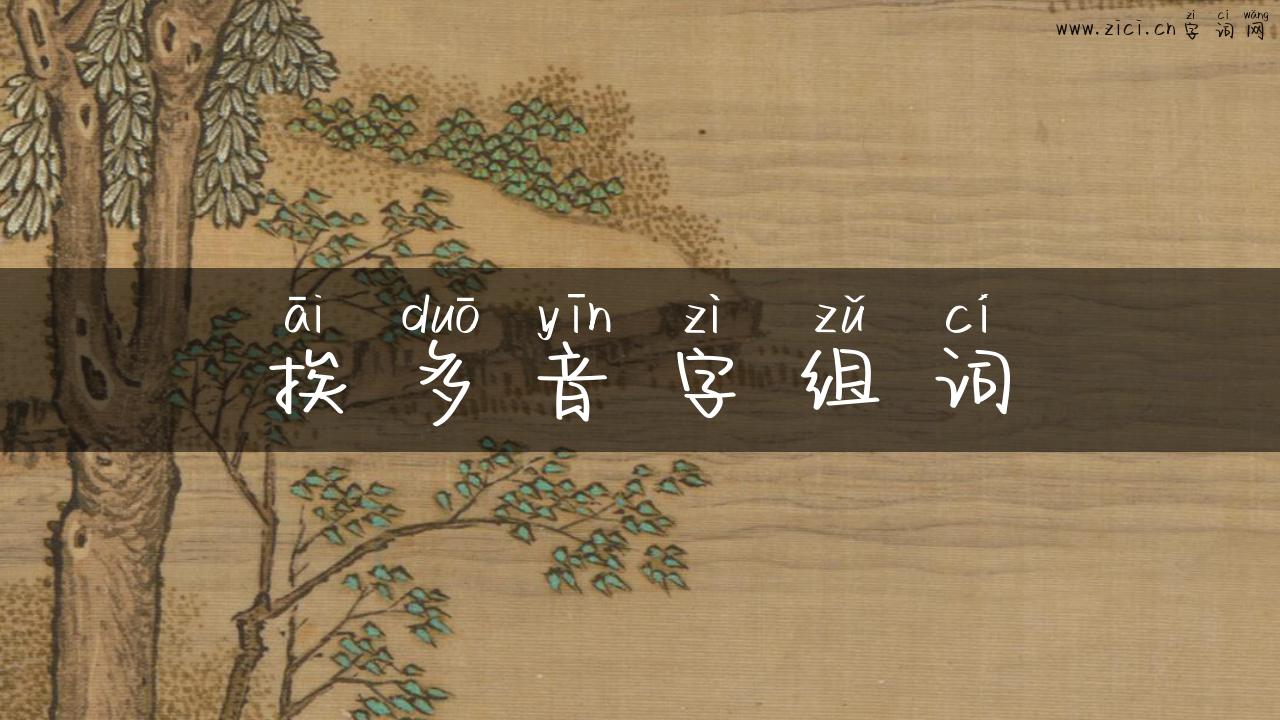 zì cí wǎng
www.zici.cn 字词网
āi duō yīn zì zǔ cí
挨多音字组词